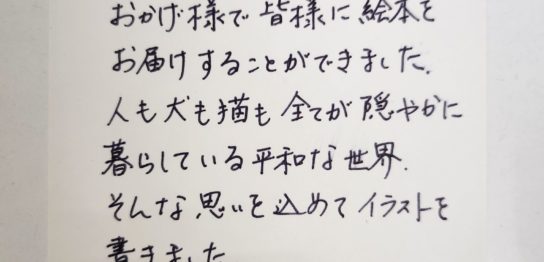 おかげ様で皆様に絵本を
お届けすることができました.
人も犬も描も全てが隠やかに
暮らしている平和な世界.
そんな思いを込めてイラストを
書きました